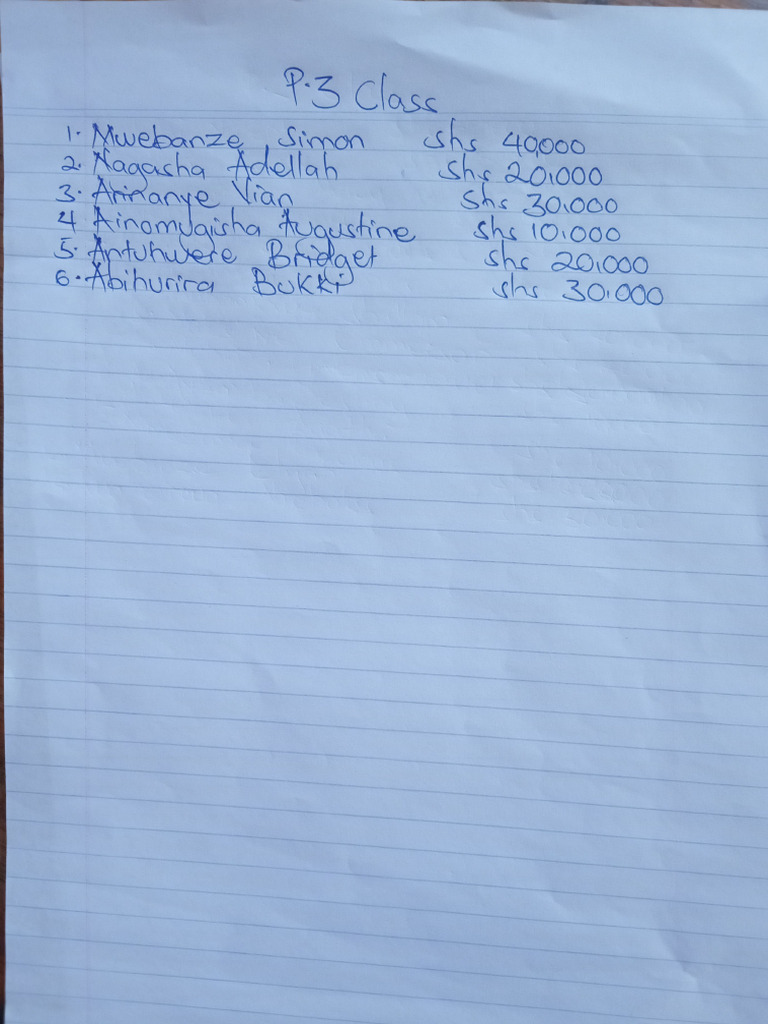 P.3 Class
1. Mwebanze Simon shs 40,000
2. Nagasha Adellah shs 20,000
3. Arinanye Vian shs 30,000
4 Ainomugisha Augustine shs 10,000
5. Antuhwere Bridget shs 20,000
6. Abihurira Bukki shs 30,000